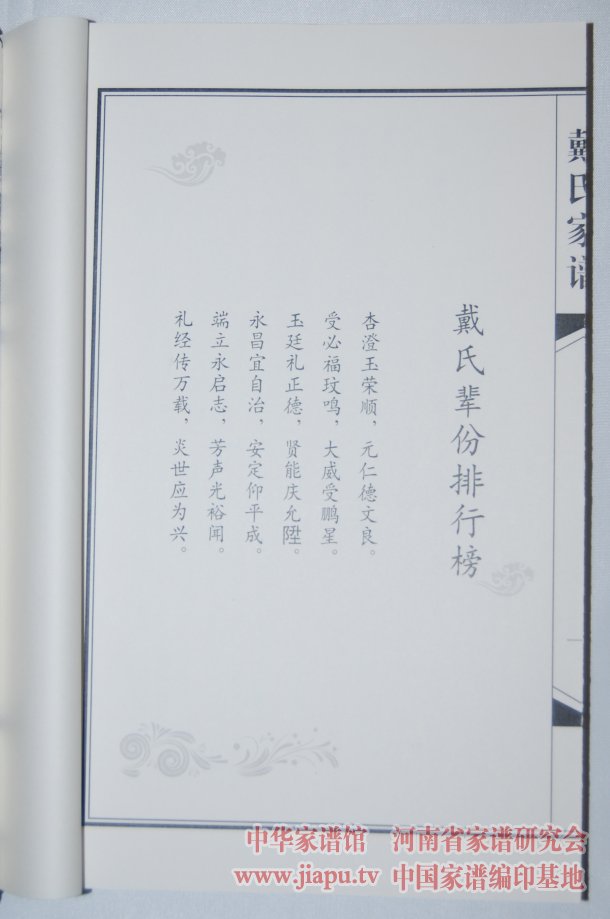 戴氏家谱
戴氏辈份排行榜
杏澄玉荣顺，元仁德文良。
受必福玟鸣，大威受鹏星。
玉廷礼正德，贤能庆允陞。
永昌宜自治，安定仰平成。
端立永启志，芳声光裕闻。
礼经传万载，炎世应为兴。
中华家谱馆 河南省家谱研究会
www.jiapu.tv 中国家谱编印基地